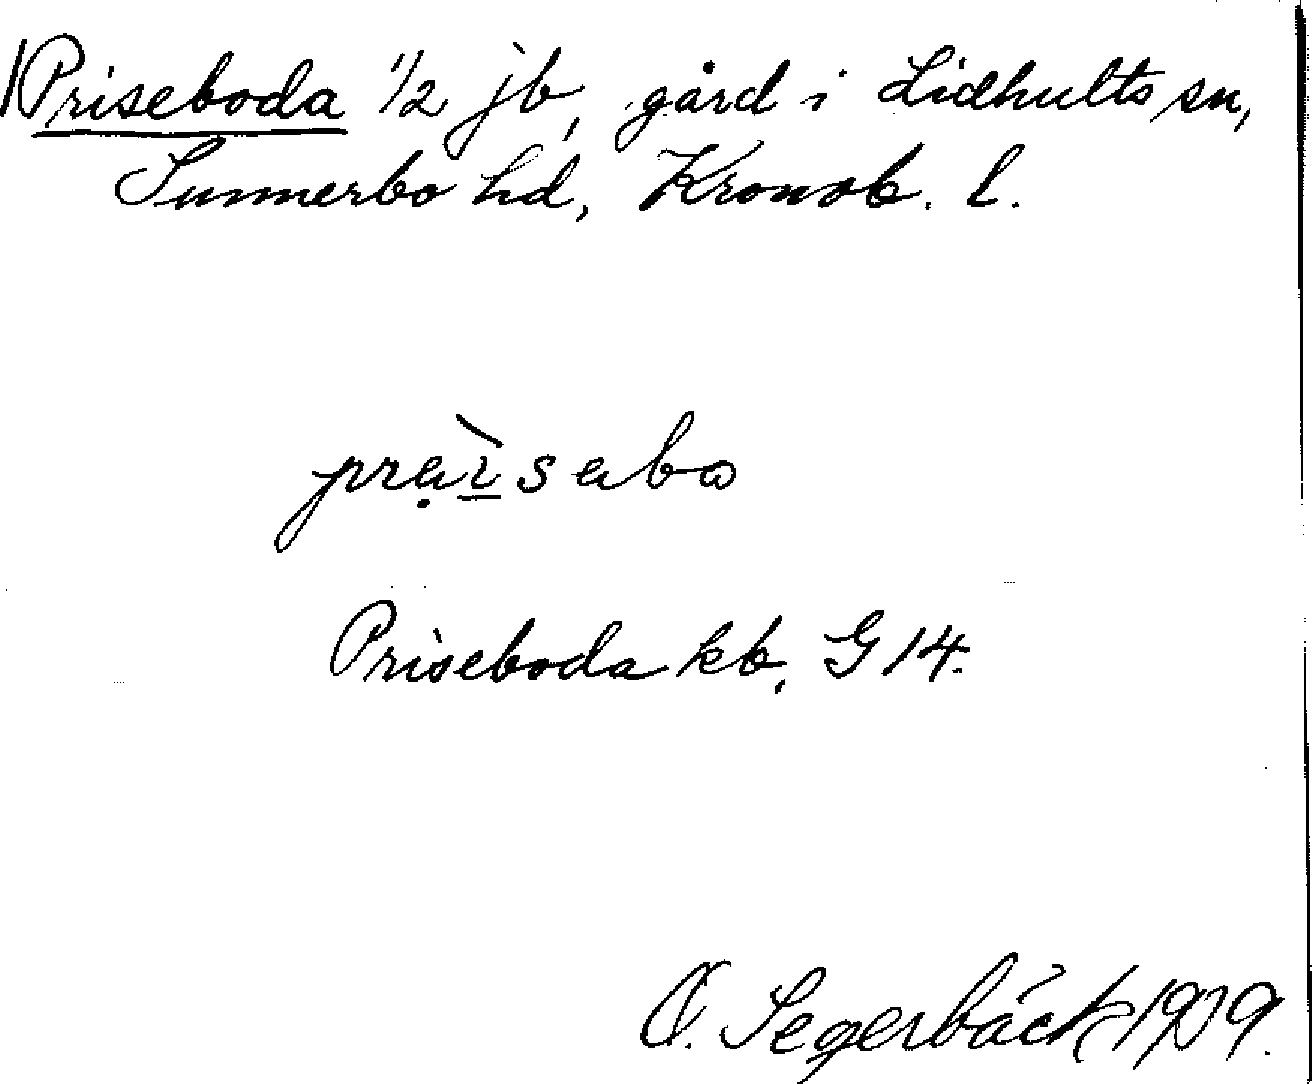 Priseboda 1/2 jb, gård i Lidhults sn,
Sunnerbo hd, Kronob. l.
praìsabo
Priseboda kb, G 14.
O. Segerbäck 1909.